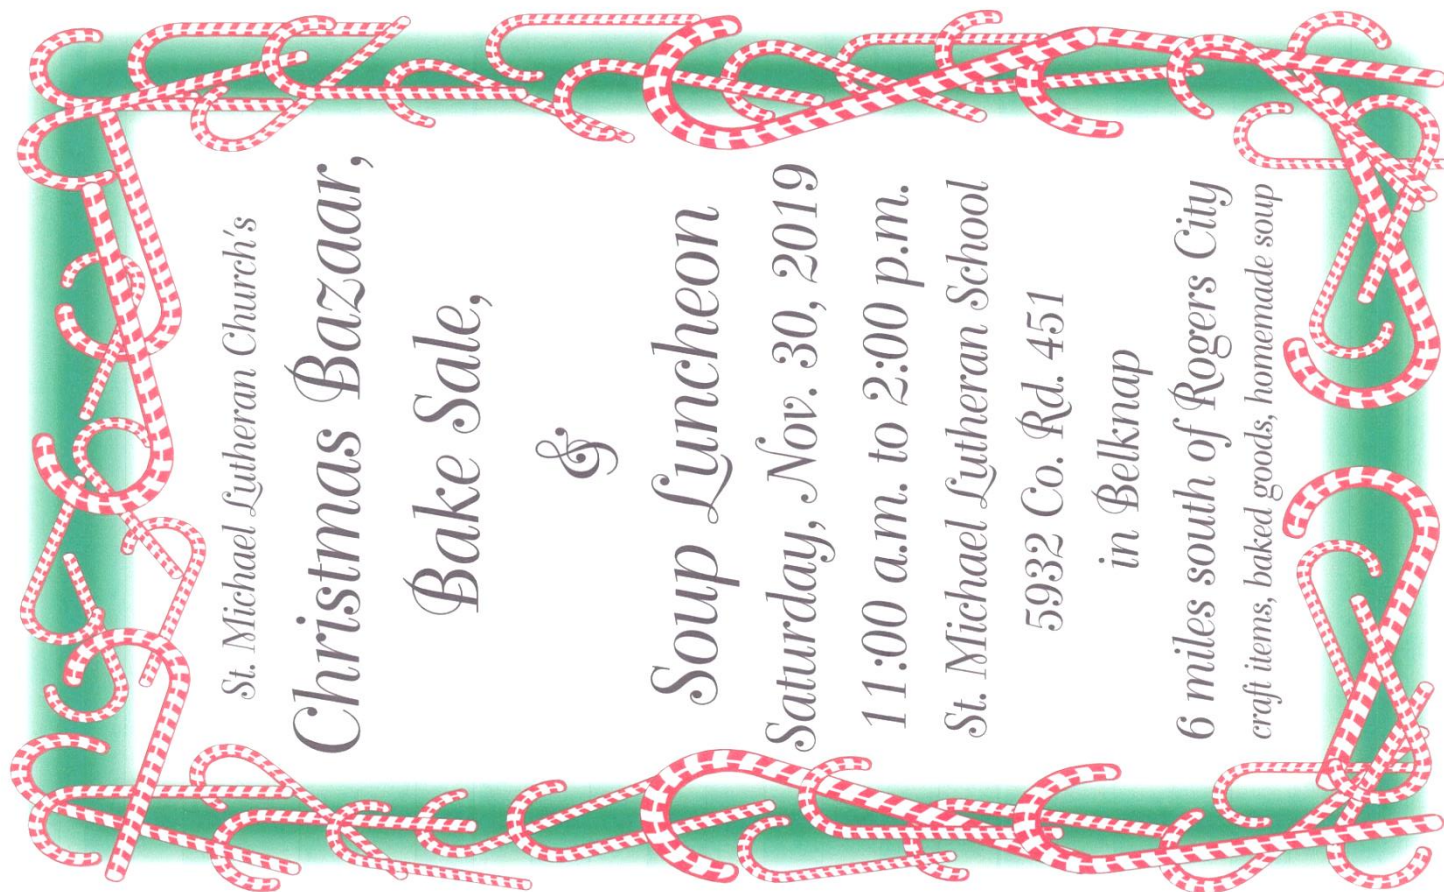 St. Michael Lutheran Church's
Christmas Bazaar,
Bake Sale,
&
Soup Luncheon
Saturday, Nov. 30, 2019
11:00 a.m. to 2:00 p.m.
St. Michael Lutheran School
5932 Co. Rd. 451
in Belknap
6 miles south of Rogers City
craft items, baked goods, homemade soup